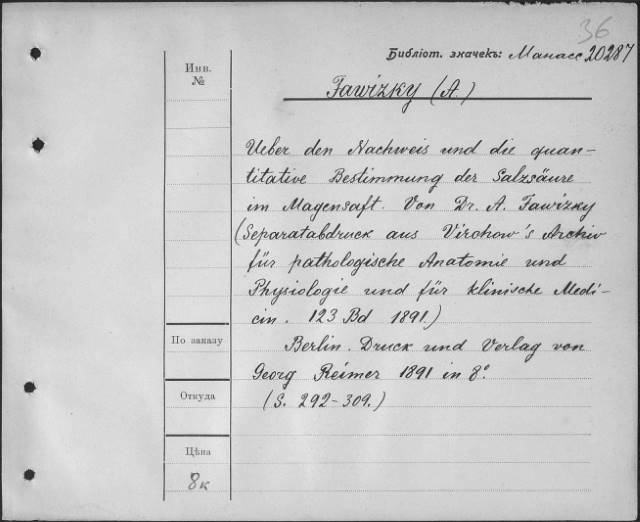 36
Библіот. значекъ: Манасс 20287
Инв.
№
Fawizky (A.)
Ueber den Nachweis und die quan-
titative Bestimmung der Salzsäure
im Magensaft. Von Dr. A. Fawizky
(Separatabdruck aus Virchow's Archiv
für pathologische Anatomie und
Physiologie und für klinische Medi-
cin. 123 Bd 1891.)
Berlin. Druck und Verlag von
Georg Reimer 1891 in 8°.
(S. 292-309.)
По заказу
Откуда
Цѣна
8к